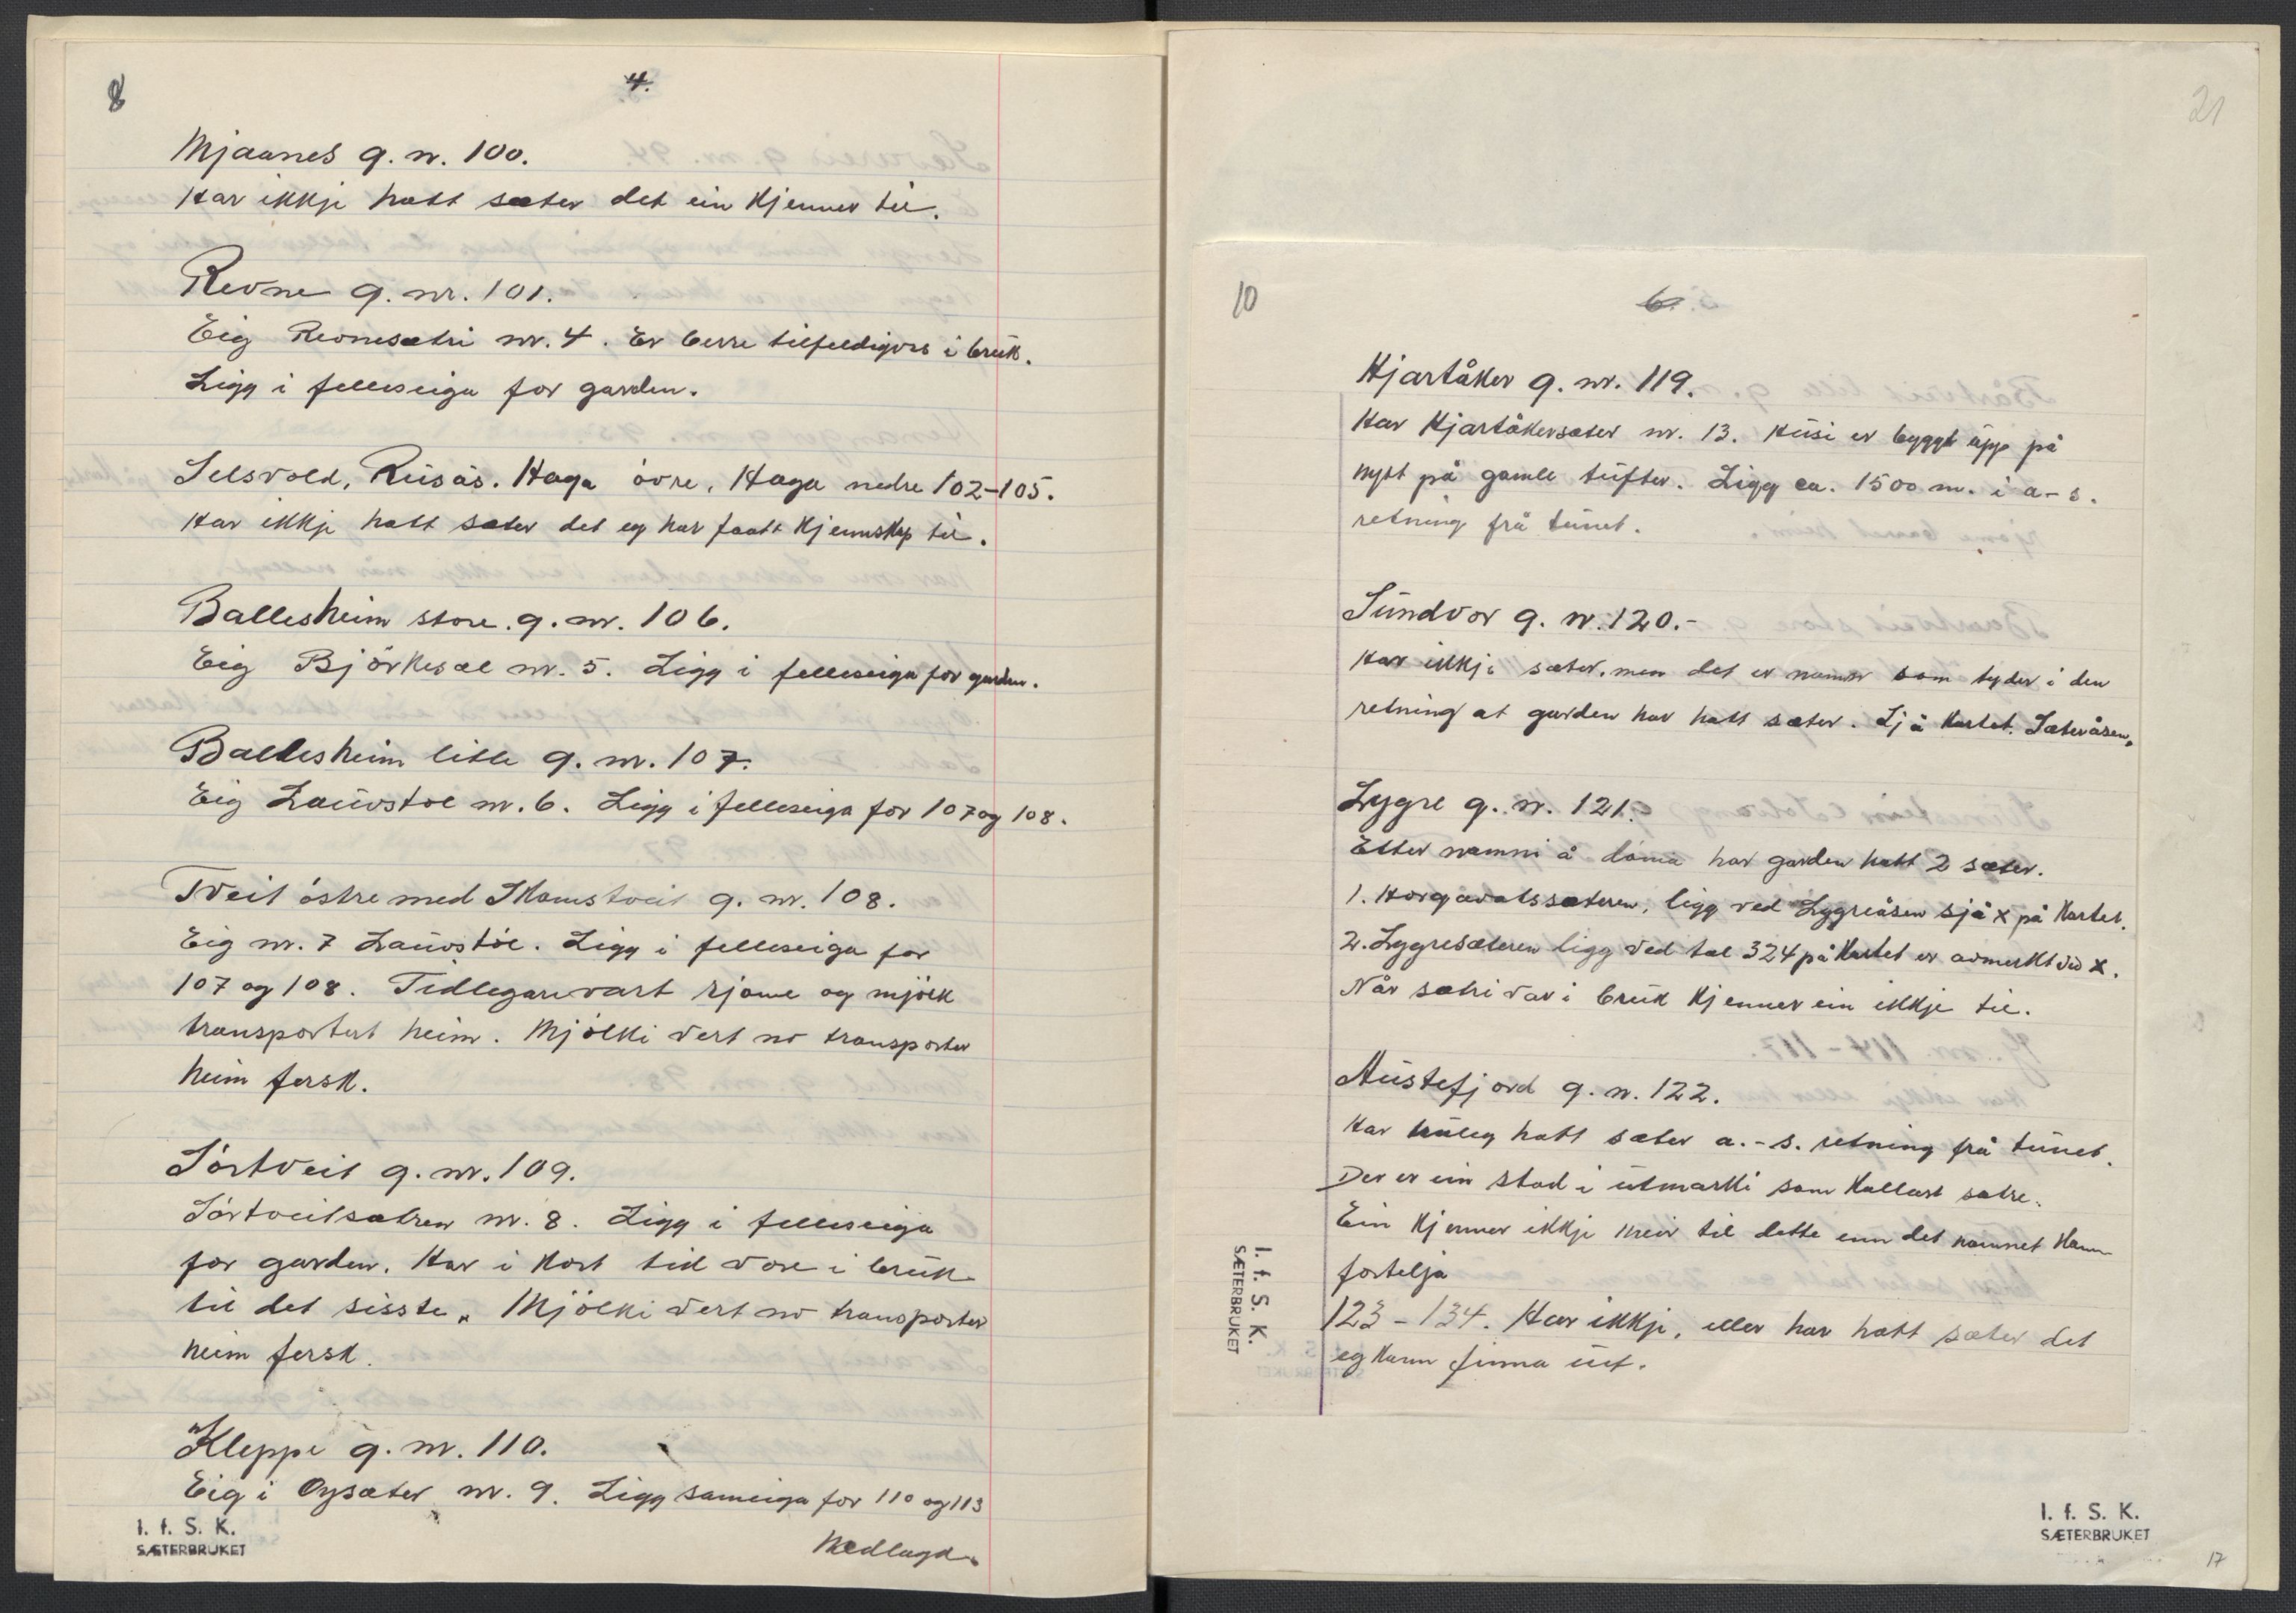 8
4.
Mjaanes g. nr. 100.
Har ikkje hatt sæter det ein kjenner til.
Revne g. nr. 101.
Eig Revnesætri nr. 4. Er berre tilfeldigvis i bruk.
Ligg i felleseiga for garden.
Selsvold, Rusås. Haga övre, Haga nedre 102-105.
Har ikkje hatt sæter det eg har faatt kjennskap til.
Ballesheim store. g. nr. 106.
Eig Björkesæl nr. 5. Ligg i felleseiga for garden.
Ballesheim litle g. nr. 107.
Eig Lauvstöl nr. 6. Ligg i felleseiga for 107 og 108.
Tveit östre med Skamstveit g. nr. 108.
Eig nr. 7 Lauvstöl. Ligg i felleseiga for
107 og 108. Tidlegare vart rjome og mjölk
transportert heim. Mjölki vert no transporter
heim fersk.
Sörtveit g. nr. 109.
Sörtveitsætren nr. 8. Ligg i felleseiga
for garden. Har i kort tid vore i bruk
til det sisste. Mjölki vert no transporter
heim fersk.
Kleppe g. nr. 110.
Eig i Oysæter nr. 9. Ligg sameiga for 110 og 113
Nedlagd.
I. f. S. K.
SÆTERBRUKET
21
10
6.
Hjartåker g. nr. 119.
Har Hjartåkersæter nr. 13. Husi er byggt upp på
nytt på gamle tufter. Ligg ca. 1500 m. i a-s.
retning frå tunet.
Sundvor g. nr. 120.-
Har ikkje sæter, men det er namn som tyder i den
retning at garden har hatt sæter. Sjå kartet. Sæteråsen.
Lygre g. nr. 121.
Etter namni å döma har garden hatt 2 sæter.
1. Horgavatssæteren, ligg ved Lygreåsen sjå x på kartet.
2. Lygresæteren ligg ved tal 324 på kartet er avmerkt ved x.
Når sætri var i bruk kjenner ein ikkje til.
Austefjord g. nr. 122.
Har truleg hatt sæter a.-s. retning frå tunet.
Der er ein stad i utmarki som kallast sætre.
Ein kjenner ikkje meir til dette enn det namnet kann
fortelja
123-134. Har ikkje, eller har hatt sæter det
eg kann finna ut.
I. f. S. K.
SÆTERBRUKET
I. f. S. K.
SÆTERBRUKET
17